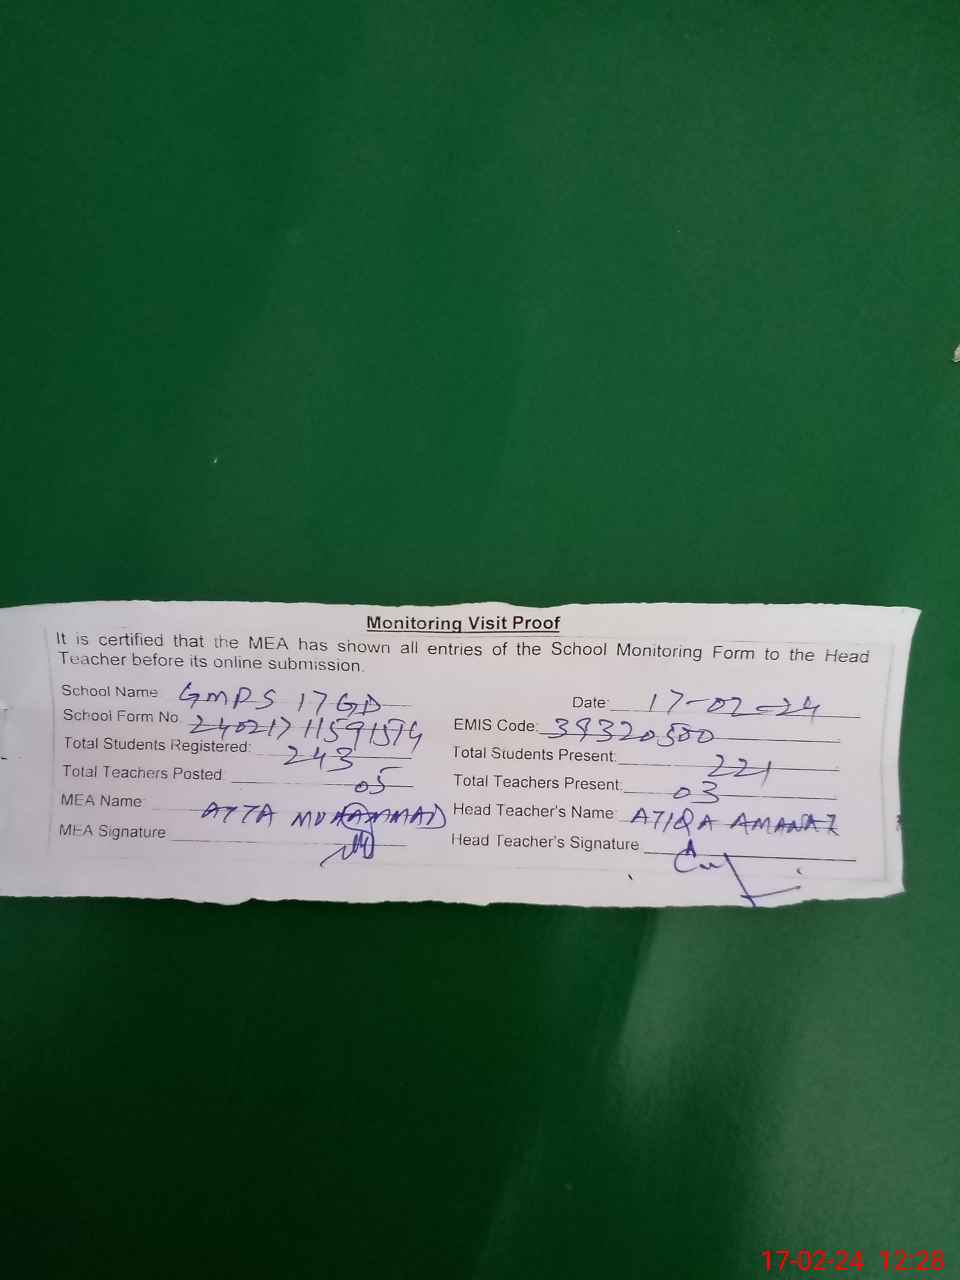 Monitoring Visit Proof
It is certified that the MEA has shown all entries of the School Monitoring Form to the Head
Teacher before its online submission.
School Name: GMPS 17 GD Date: 17-02-24
School Form No. 24021711591594 EMIS Code: 39320500
Total Students Registered: 243 Total Students Present: 221
Total Teachers Posted: 05 Total Teachers Present: 03
MEA Name: ATTA MUHAMMAD Head Teacher's Name: ATIQA AMANAZ
MEA Signature Head Teacher's Signature
17-02-24 12:28